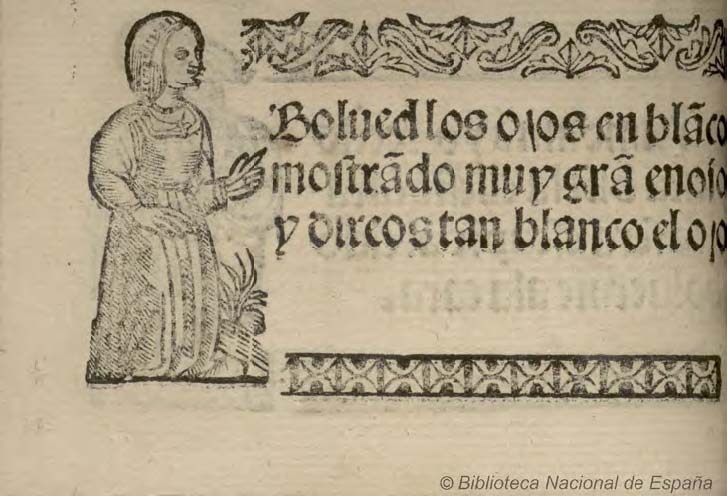 Bolued los ojos en blãco
mostrãdo muy grã enojo
y direos tan blanco el ojo
© Biblioteca Nacional de España